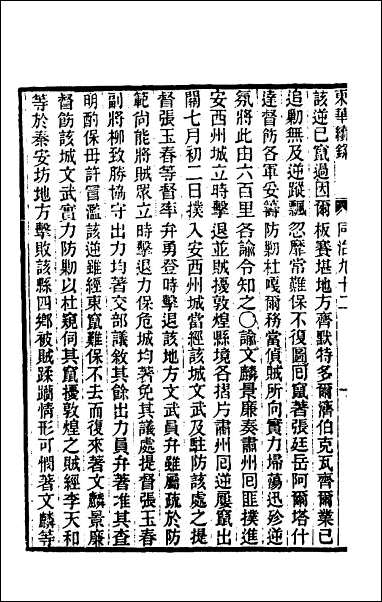 東華續錄　同治九十二
該逆已竄過因爾板賽堪地方齊默特多爾濟伯克瓦齊爾業已
追勦無及逆蹤飄忽靡常難保不復圖回竄著張廷岳阿爾塔什
達督飭各軍妥籌防勦杜嘎爾務當偵賊所向實力埽蕩迅殄逆
氛將此由六百里各諭令知之○諭文麟景廉奏肅州回匪撲進
安西州城立時擊退並賊擾敦煌縣境各摺片肅州回逆屢竄出
關七月初二日撲入安西州城當經該城文武及駐防該處之提
督張玉春等督率弁勇登時擊退該地方文武員弁雖屬疏於防
範尚能將賊眾立時擊退力保危城均著免其議處提督張玉春
副將柳致勝協守出力均著交部議敘其餘出力員弁著准其查
明酌保毋許冒濫該逆雖經東竄難保不去而復來著文麟景廉
督飭該城文武實力防勦以杜窺伺其竄擾敦煌之賊經李天和
等於秦安坊地方擊敗該縣四鄉被賊蹂躪情形可憫著文麟等